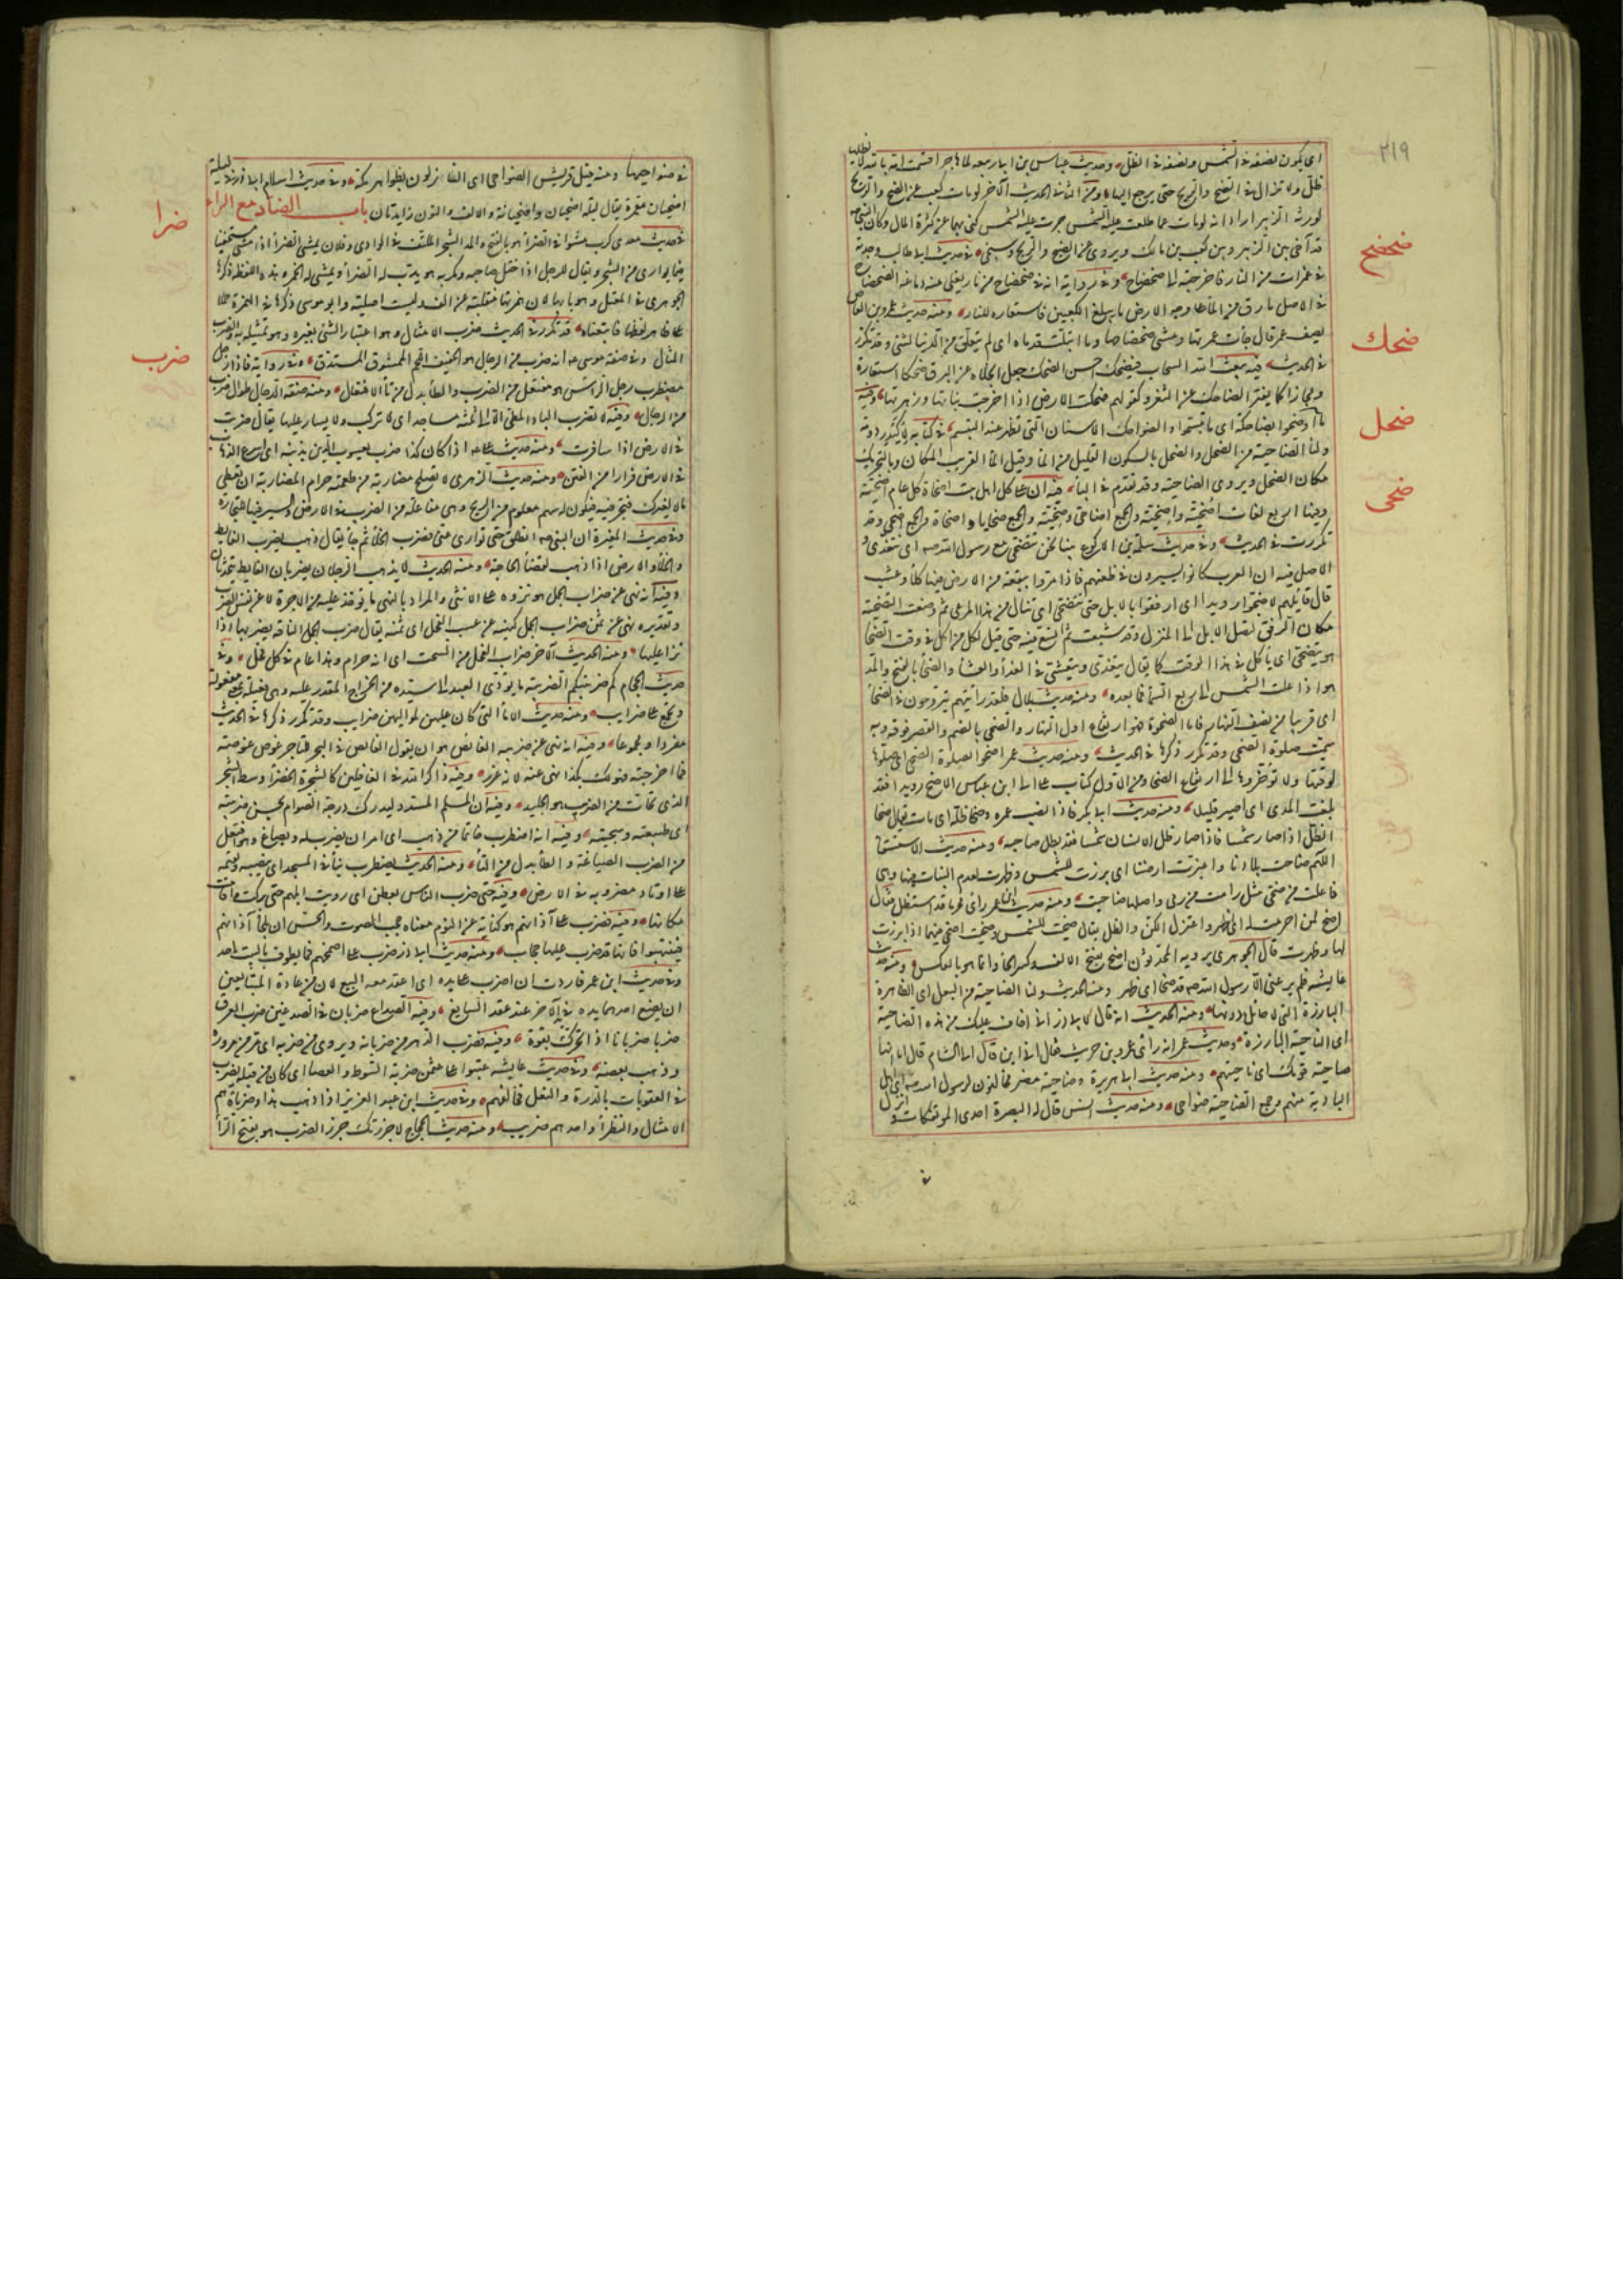 ٢١٩
اى يكون نصفه فى الشمس ونصفه فى الظل وحديث عياش بن ابى ربيعة لما هاجر اقسمت امه بالله لا يظلها
ظل ولا تزال فى الضح والريح حتى يرجع اليها ومن الثانى الحديث الآخر لو مات كعب عن الضح والريح
لورثه الزبير اراد انه لو مات عما طلعت عليه الشمس وجرت عليه الريح كنى بهما عن كثرة المال وكان النبى صم
قد آخى بين الزبير وبين كعب بن مالك ويروى عن الضيح والريح وسيجئ فى حديث ابى طالب وجدته
فى غمرات من النار فاخرجته الى ضحضاح وفى رواية انه فى ضحضاح من نار يغلى منه دماغه الضحضاح
فى الاصل ما رق من الماء على وجه الارض ما يبلغ الكعبين فاستعاره للنار ومنه حديث عمرو بن العاص
يصف عمر قال جانب غمرتها ومشى ضحضاحها وما ابتلت قدماه اى لم يتعلق من الدنيا بشئ وقد تكرر
فى الحديث فيه يبعث الله السحاب فيضحك احسن الضحك جعل انجلاءه عن البرق ضحكا استعارة
ومجازا كما يفتر الضاحك عن الثغر وكقولهم ضحكت الارض اذا اخرجت نباتها وزهرتها وفيه
ما اوضحوا بضاحكة اى ما تبسموا والضواحك الاسنان التى تظهر عند التبسم فى كتابه لاكيدر دومة
ولنا الضاحية من الضحل والضحل بالسكون القليل من الماء وقيل الماء القريب المكان وبالتحريك
مكان الضحل ويروى الضاحية وقد تقدم فى الباء فيه ان على كل اهل بيت اضحاة كل عام اضحية
وفيها اربع لغات اضحية واضحية والجمع اضاحى وضحية والجمع ضحايا واضحاة والجمع اضحى وقد
تكررت فى الحديث وفى حديث سلمة بن الاكوع بينا نحن نتضحى مع رسول الله صم اى نتغدى و
الاصل فيه ان العرب كانوا يسيرون فى ظعنهم فاذا مروا ببقعة من الارض فيها كلأ وعشب
قال قائلهم الا ضحوا رويدا اى ارفقوا بالابل حتى تتضحى اى تنال من هذا المرعى ثم وضعت التضحية
مكان الرفق لتصل الابل الى المنزل وقد شبعت ثم اتسع فيه حتى قيل لكل من اكل فى وقت الضحى
هو يتضحى اى يأكل فى هذا الوقت كما يقال يتغدى ويتعشى فى الغداء والعشاء والضحاء بالفتح والمد
هو اذا علت الشمس الى ربع السماء فما بعده ومنه حديث بلال فلقد رأيتهم يتروحون فى الضحاء
اى قريبا من نصف النهار فاما الضحوة فهو ارتفاع اول النهار والضحى بالضم والقصر فوقه وبه
سميت صلوة الضحى وقد تكرر ذكرها فى الحديث ومنه حديث عمر اضحوا بصلوة الضحى اى صلوها
لوقتها ولا تؤخروها الى ارتفاع الضحى ومن الاول كتاب على الى ابن عباس الا ضح رويدا فقد
بلغت المدى اى اصبر قليلا ومنه حديث ابى بكر فاذا نضب عمره وضحا ظله اى مات يقال ضحا
الظل اذا صار شمسا فاذا صار ظل الانسان شمسا فقد بطل صاحبه ومنه حديث الاستسقاء
اللهم ضاحت بلادنا واغبرت ارضنا اى برزت للشمس وظهرت لعدم النبات فيها وهى
فاعلت من ضحى مثل رامت من رمى واصلها ضاحيت ومنه حديث ابن عمر رأى محرما قد استظل فقال
اضح لمن احرمت له اى اظهر واعتزل الكن والظل يقال ضحيت للشمس وضحيت اضحى فيهما اذا برزت
لها وظهرت قال الجوهرى يرويه المحدثون اضح بفتح الالف وكسر الحاء وانما هو بالعكس ومنه حديث
عايشة فلم يرعنى الا رسول الله صم قد ضحا اى ظهر ومنه الحديث ولنا الضاحية من البعل اى الظاهرة
البارزة التى لا حائل دونها ومنه الحديث انه قال لابى ذر انى اخاف عليك من هذه الضاحية
اى الناحية البارزة وحديث عمر انه رأى عمرو بن حريث فقال الى اين قال الى الشام قال اما انها
ضاحية قومك اى ناحيتهم ومنه حديث ابى هريرة وضاحية مضر مخالفون لرسول الله صم اى اهل
البادية منهم وجمع الضاحية ضواحى ومنه حديث انس قال له البصرة احدى المؤتفكات فانزل
فى
ضحضح
ضحك
ضحل
ضحى
فى ضواحيها ومنه قيل قريش الضواحى اى النازلون بظواهر مكة وفى حديث اسلام ابى ذر فى ليلة
اضحيان مقمرة يقال ليلة اضحيان واضحيانة والالف والنون زايدتان باب الضاد مع الراء
فى حديث معدى كرب مشوا فى الضراء هو بالفتح والمد الشجر الملتف فى الوادى وفلان يمشى الضراء اذا مشى مستخفيا
فيما يوارى من الشجر ويقال للرجل اذا ختل صاحبه ومكر به هو يدب له الضراء ويمشى له الخمر وهذه اللفظة ذكرها
الجوهرى فى المعتل وهو بابها لان همزتها منقلبة عن الف وليست اصلية وابو موسى ذكرها فى الهمزة حملا
على ظاهر لفظها فاتبعناه قد تكرر فى الحديث ضرب الامثال وهو اعتبار الشئ بغيره وهو تمثيله به والضرب
المثال وفى صفة موسى عم انه ضرب من الرجال هو الخفيف اللحم الممشوق المستدق وفى رواية فاذا رجل
مضطرب رجل الرأس هو مفتعل من الضرب والطاء بدل من تاء الافتعال ومنه صفة الدجال طوال ضرب
من الرجال وفيه لا تضرب اكباد المطى الا الى ثلثة مساجد اى لا تركب ولا يسار عليها يقال ضربت
فى الارض اذا سافرت ومنه حديث على اذا كان كذا ضرب يعسوب الدين بذنبه اى اسرع الذهاب
فى الارض فرارا من الفتن ومنه حديث الزهرى لا تصلح مضاربة من طعمته حرام المضاربة ان تعطى
مالا لغيرك يتجر فيه فيكون له سهم معلوم من الربح وهى مفاعلة من الضرب فى الارض والسير فيها للتجارة
وفى حديث المغيرة ان النبى صم انطلق حتى توارى عنى فضرب الخلاء ثم جاء يقال ذهب يضرب الغايط
والخلاء والارض اذا ذهب لقضاء الحاجة ومنه الحديث لا يذهب الرجلان يضربان الغايط يتحدثان
وفيه انه نهى عن ضراب الجمل هو نزوه على الانثى والمراد بالنهى ما يؤخذ عليه من الاجرة لا عن نفس الضراب
وتقديره نهى عن ثمن ضراب الجمل كنهيه عن عسب الفحل اى ثمنه يقال ضرب الجمل الناقة يضربها اذا
نزا عليها ومنه الحديث الآخر ضراب الفحل من السحت اى انه حرام وهذا عام فى كل فحل وفى
حديث الحجام كم ضريبتك الضريبة ما يؤدى العبد الى سيده من الخراج المقدر عليه وهى فعيلة بمعنى مفعولة
وتجمع على ضرايب ومنه حديث الاماء التى كان عليهن لمواليهن ضرايب وقد تكرر ذكرها فى الحديث
مفردا ومجموعا وفيه انه نهى عن ضربة الغايص هو ان يقول الغايص فى البحر للتاجر اغوص غوصة
فما اخرجته فهو لك بكذا نهى عنه لانه غرر وفيه ذاكر الله فى الغافلين كالشجرة الخضراء وسط الشجر
الذى تحات من الضريب هو الجليد وفيه ان المسلم المسدد ليدرك درجة الصوام بحسن ضريبته
اى طبيعته وسجيته وفيه انه اضطرب خاتما من ذهب اى امر ان يضرب له ويصاغ وهو افتعل
من الضرب الصياغة والطاء بدل من التاء ومنه الحديث يضطرب بناء فى المسجد اى ينصبه ويقيمه
على اوتاد مضروبة فى الارض وفيه حتى ضرب الناس بعطن اى رويت ابلهم حتى بركت واقامت
مكانها وفيه فضرب على آذانهم هو كناية عن النوم معناه حجب الصوت والحس ان يلجا آذانهم
فينتبهوا فكانها قد ضرب عليها حجاب ومنه حديث ابى ذر ضرب على اصمختهم فما يطوف بالبيت احد
وفى حديث ابن عمر فاردت ان اضرب على يده اى اعقد معه البيع لان من عادة المتبايعين
ان يضع احدهما يده فى يد الآخر عند عقد التبايع وفيه الصداع ضربان فى الصدغين ضرب العرق
ضربا وضربانا اذا تحرك بقوة وفيه فضرب الدهر من ضربانه ويروى من ضربه اى مر من مروره
وذهب بعضه وفى حديث عايشة عتبوا على عثمن ضربة السوط والعصا اى كان من قبله يضرب
فى العقوبات بالدرة والنعل فخالفهم وفى حديث ابن عبد العزيز اذا ذهب هذا وضرباؤه هم
الامثال والنظراء واحدهم ضريب ومنه حديث الحجاج لاجزرنك جزر الضرب هو بفتح الراء
ضرا
ضرب